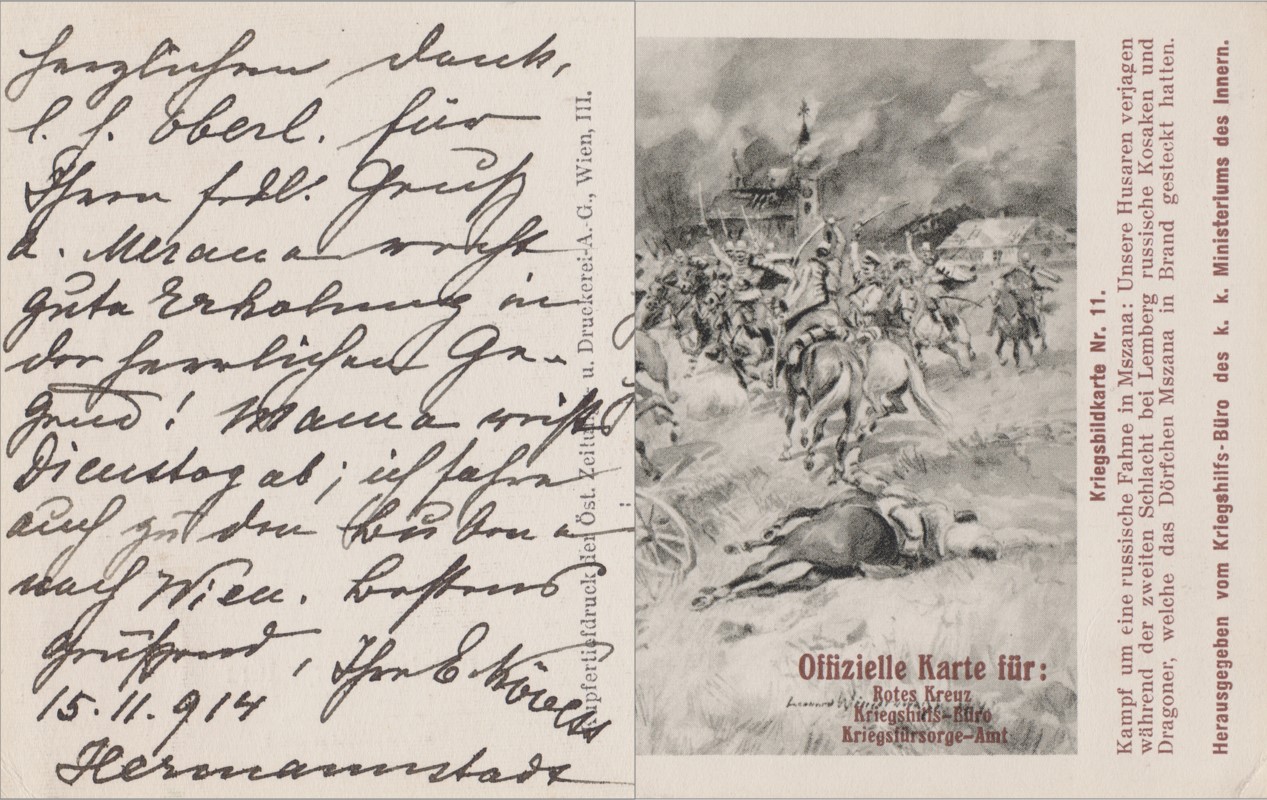 Herzlichen Dank,
l. H. Oberl. für
Ihren frdl. Gruß
a. Meran a
gute Erholung in
der herrlichen Ge-
gend! Mama reist
Dienstag ab; ich fahre
auch zu den Buben
nach Wien. Bestens
grüßend, Ihre E
15.11.914
Hermannstadt
Kupfertiefdruck der Öst. Zeitungs u. Druckerei-A.-G., Wien, III.
Offizielle Karte für:
Rotes Kreuz
Kriegshilfs-Büro
Kriegsfürsorge-Amt
Kriegsbildkarte Nr. 11.
Kampf um eine russische Fahne in Mszana: Unsere Husaren verjagen
während der zweiten Schlacht bei Lemberg russische Kosaken und
Dragoner, welche das Dörfchen Mszana in Brand gesteckt hatten.
Herausgegeben vom Kriegshilfs-Büro des k. k. Ministeriums des Innern.